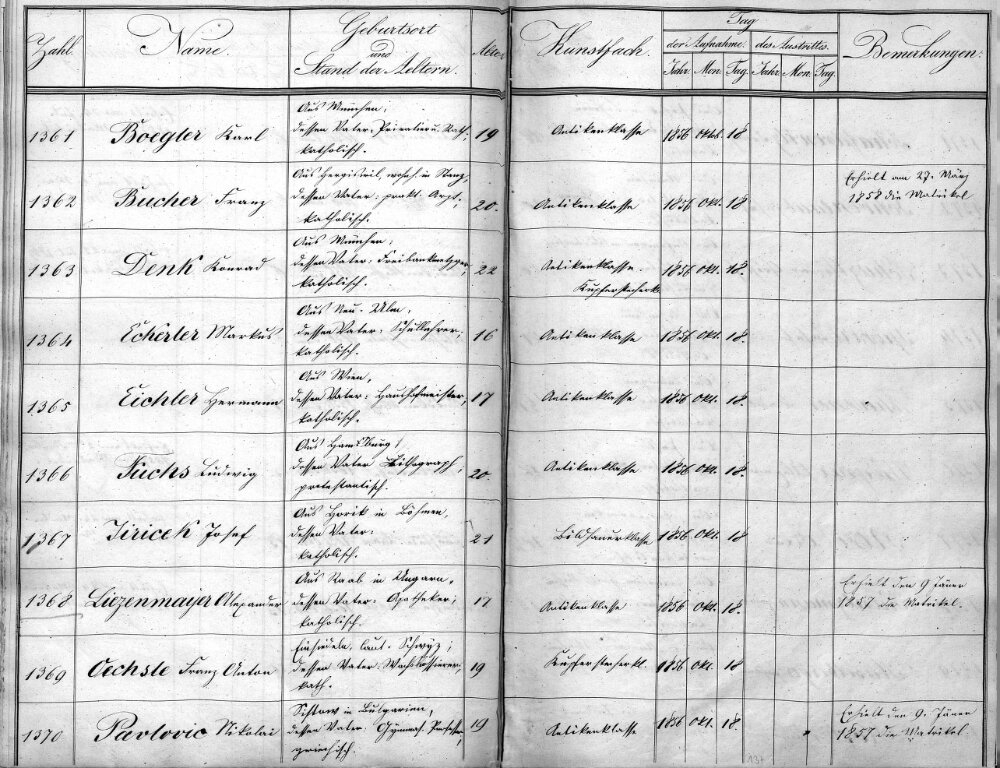 Zahl. Name. Geburtsort Alter Kunstfach. Tag Bemerkungen.
und der Aufnahme. des Austritts.
Stand der Aeltern. Jahr. Mon. Tag. Jahr. Mon. Tag.
Aus München,
1361 Boegler Karl dessen Vater: Privatier u. Rath, 19 Antikenklasse 1856 Oktob. 18
katholisch.
Aus Hergiswil, wohnh. in Stanz, Erhielt am 27. März
1362 Bucher Franz dessen Vater: prakt. Arzt, 20. Antikenklasse 1856 Okt. 18. 1858 die Matrikel
katholisch.
Aus München,
1363 Denk Konrad dessen Vater: Freibankmetzger, 22 Antikenklasse. 1856 Okt. 18.
katholisch. Kupferstecherk.
Aus Neu-Ulm,
1364 Echerler Markus dessen Vater: Schullehrer, 16 Antikenklasse 1856 Okt. 18.
katholisch.
Aus Wien,
1365 Eichler Hermann dessen Vater: Haushofmeister, 17 Antikenklasse 1856 Okt. 18.
katholisch.
1366 Fuchs Ludwig dessen Vater Lithograph, 20. Antikenklasse 1856 Okt. 18.
protestantisch.
Aus Horik in Böhmen,
1367 Jiricek Josef dessen Vater: 21 Bildhauerklasse 1856 Okt. 18
katholisch.
Aus Raab in Ungarn, Erhielt den 9 Jäner
1368 Liezenmayer Alexander dessen Vater: Apotheker, 17 Antikenklasse 1856 Okt. 18. 1857 die Matrikel.
katholisch.
Einsiedeln, Cant. Schwÿz;
1369 Oechsle Franz Anton dessen Vater Wachsbossierer 19 Kupferstecherkl. 1856 Okt. 18
kath.
Sistow in Bulgarien, Erhielt den 9. Jäner
1370 Pavlovic Nikolai dessen Vater: Gymnas. Professor, 19 Antikenklasse 1856 Okt. 18. 1857 die Matrikel.
griechisch.